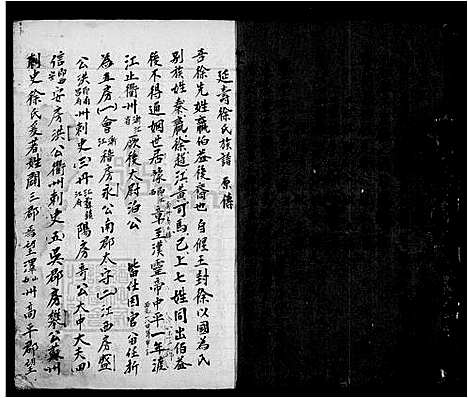 延壽徐氏族譜 原傳
吾徐先姓嬴伯益後裔也自偃王封徐以國為氏
別族姓秦嬴徐趙江黃可馬已上七姓同出伯益
後不得通姻世居豫章至漢靈帝中平一年渡
江止衢州 厥後太尉治公 皆仕因官分任折
為五房(一)會稽房永公南郡太守(二)江西房盤
公洪州刺史(三)丹陽房奇公大中大夫(四)
信安房洪公衢州刺史(五)吳郡房樊公蘇州
刺史徐氏爰著姓聞三郡為望澤州高平郡望